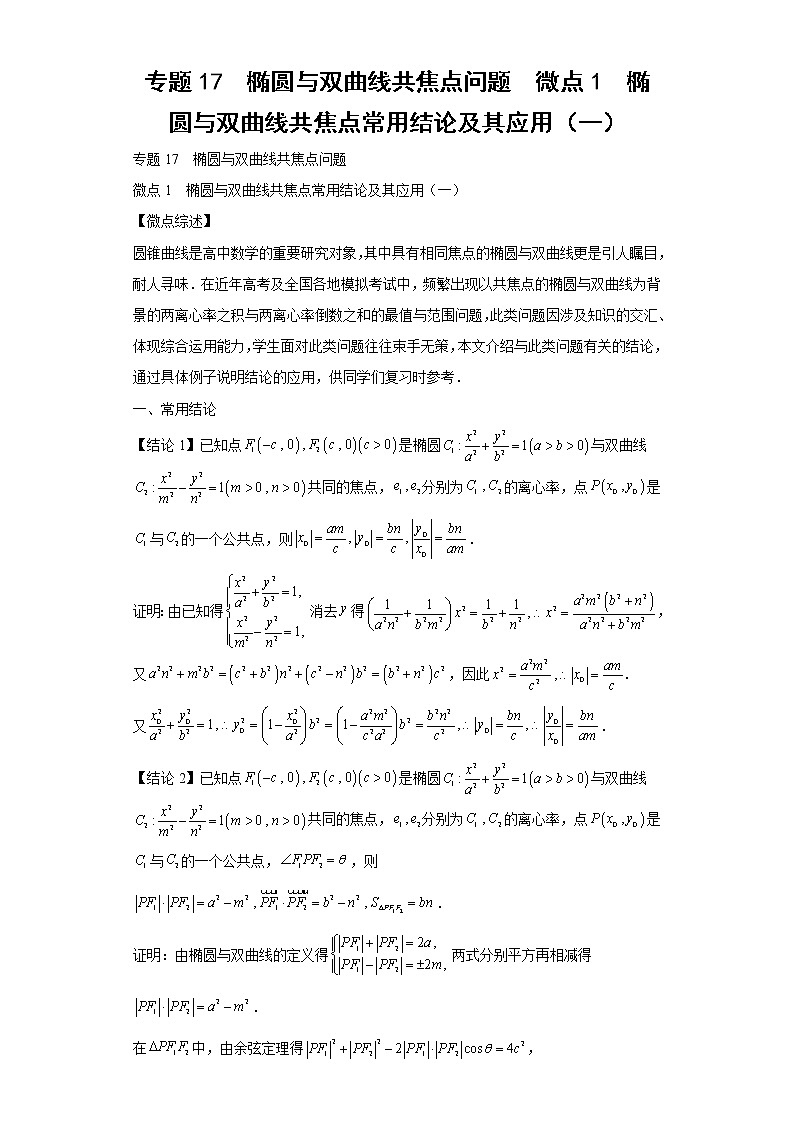 专题17　椭圆与双曲线共焦点问题　微点1　椭
圆与双曲线共焦点常用结论及其应用（一）
专题 17　椭圆与双曲线共焦点问题
微点 1　椭圆与双曲线共焦点常用结论及其应用（一）
【微点综述】
圆锥曲线是高中数学的重要研究对象，其中具有相同焦点的椭圆与双曲线更是引人瞩目，
耐人寻味．在近年高考及全国各地模拟考试中，频繁出现以共焦点的椭圆与双曲线为背
景的两离心率之积与两离心率倒数之和的最值与范围问题，此类问题因涉及知识的交汇、
体现综合运用能力，学生面对此类问题往往束手无策，本文介绍与此类问题有关的结论，
通过具体例子说明结论的应用，供同学们复习时参考．
一、常用结论
【结论 1】已知点 F₁(−c , 0) , F₂(c , 0)(c > 0) 是椭圆 C₁ : x²/a² + y²/b² = 1(a > b > 0) 与双曲线
C₂ : x²/m² − y²/n² = 1(m > 0 , n > 0) 共同的焦点，e₁ , e₂ 分别为 C₁ , C₂ 的离心率，点 P(x_D , y_D) 是
C₁ 与 C₂ 的一个公共点，则 |x_D| = am/c , |y_D| = bn/c , |y_D/x_D| = bn/am ．
证明：由已知得 { x²/a² + y²/b² = 1, x²/m² − y²/n² = 1, 消去 y 得 (1/(a²n²) + 1/(b²m²)) x² = 1/b² + 1/n² , ∴ x² = a²m²(b² + n²)/(a²n² + b²m²) ，
又 a²n² + m²b² = (c² + b²)n² + (c² − n²)b² = (b² + n²)c² ，因此 x² = a²m²/c² , ∴ |x_D| = am/c ．
又 x_D²/a² + y_D²/b² = 1 , ∴ y_D² = (1 − x_D²/a²) b² = (1 − a²m²/(c²a²)) b² = b²n²/c² , ∴ |y_D| = bn/c , ∴ |y_D/x_D| = bn/am ．
【结论 2】已知点 F₁(−c , 0) , F₂(c , 0)(c > 0) 是椭圆 C₁ : x²/a² + y²/b² = 1(a > b > 0) 与双曲线
C₂ : x²/m² − y²/n² = 1(m > 0 , n > 0) 共同的焦点，e₁ , e₂ 分别为 C₁ , C₂ 的离心率，点 P(x_D , y_D) 是
C₁ 与 C₂ 的一个公共点，∠F₁PF₂ = θ ，则
|PF₁| · |PF₂| = a² − m² , PF₁ · PF₂ = b² − n² , S_△PF₁F₂ = bn ．
证明：由椭圆与双曲线的定义得 { |PF₁| + |PF₂| = 2a , |PF₁| − |PF₂| = ±2m , 两式分别平方再相减得
|PF₁| · |PF₂| = a² − m² ．
在 △PF₁F₂ 中，由余弦定理得 |PF₁|² + |PF₂|² − 2|PF₁| · |PF₂| cos θ = 4c² ，